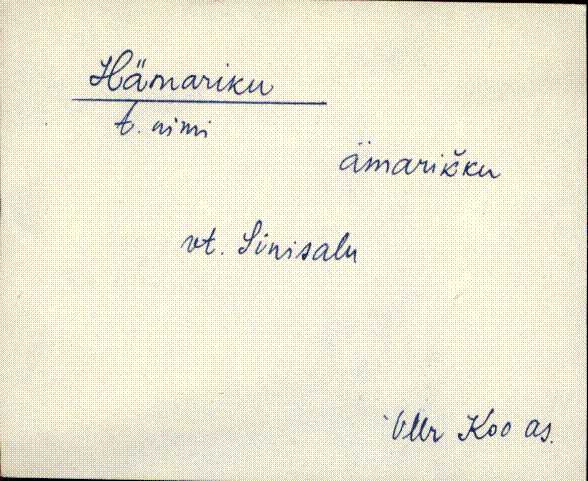 Hämariku
t. nimi
ämarik̆ku
vt. Sinisalu
Vllr Koo as.